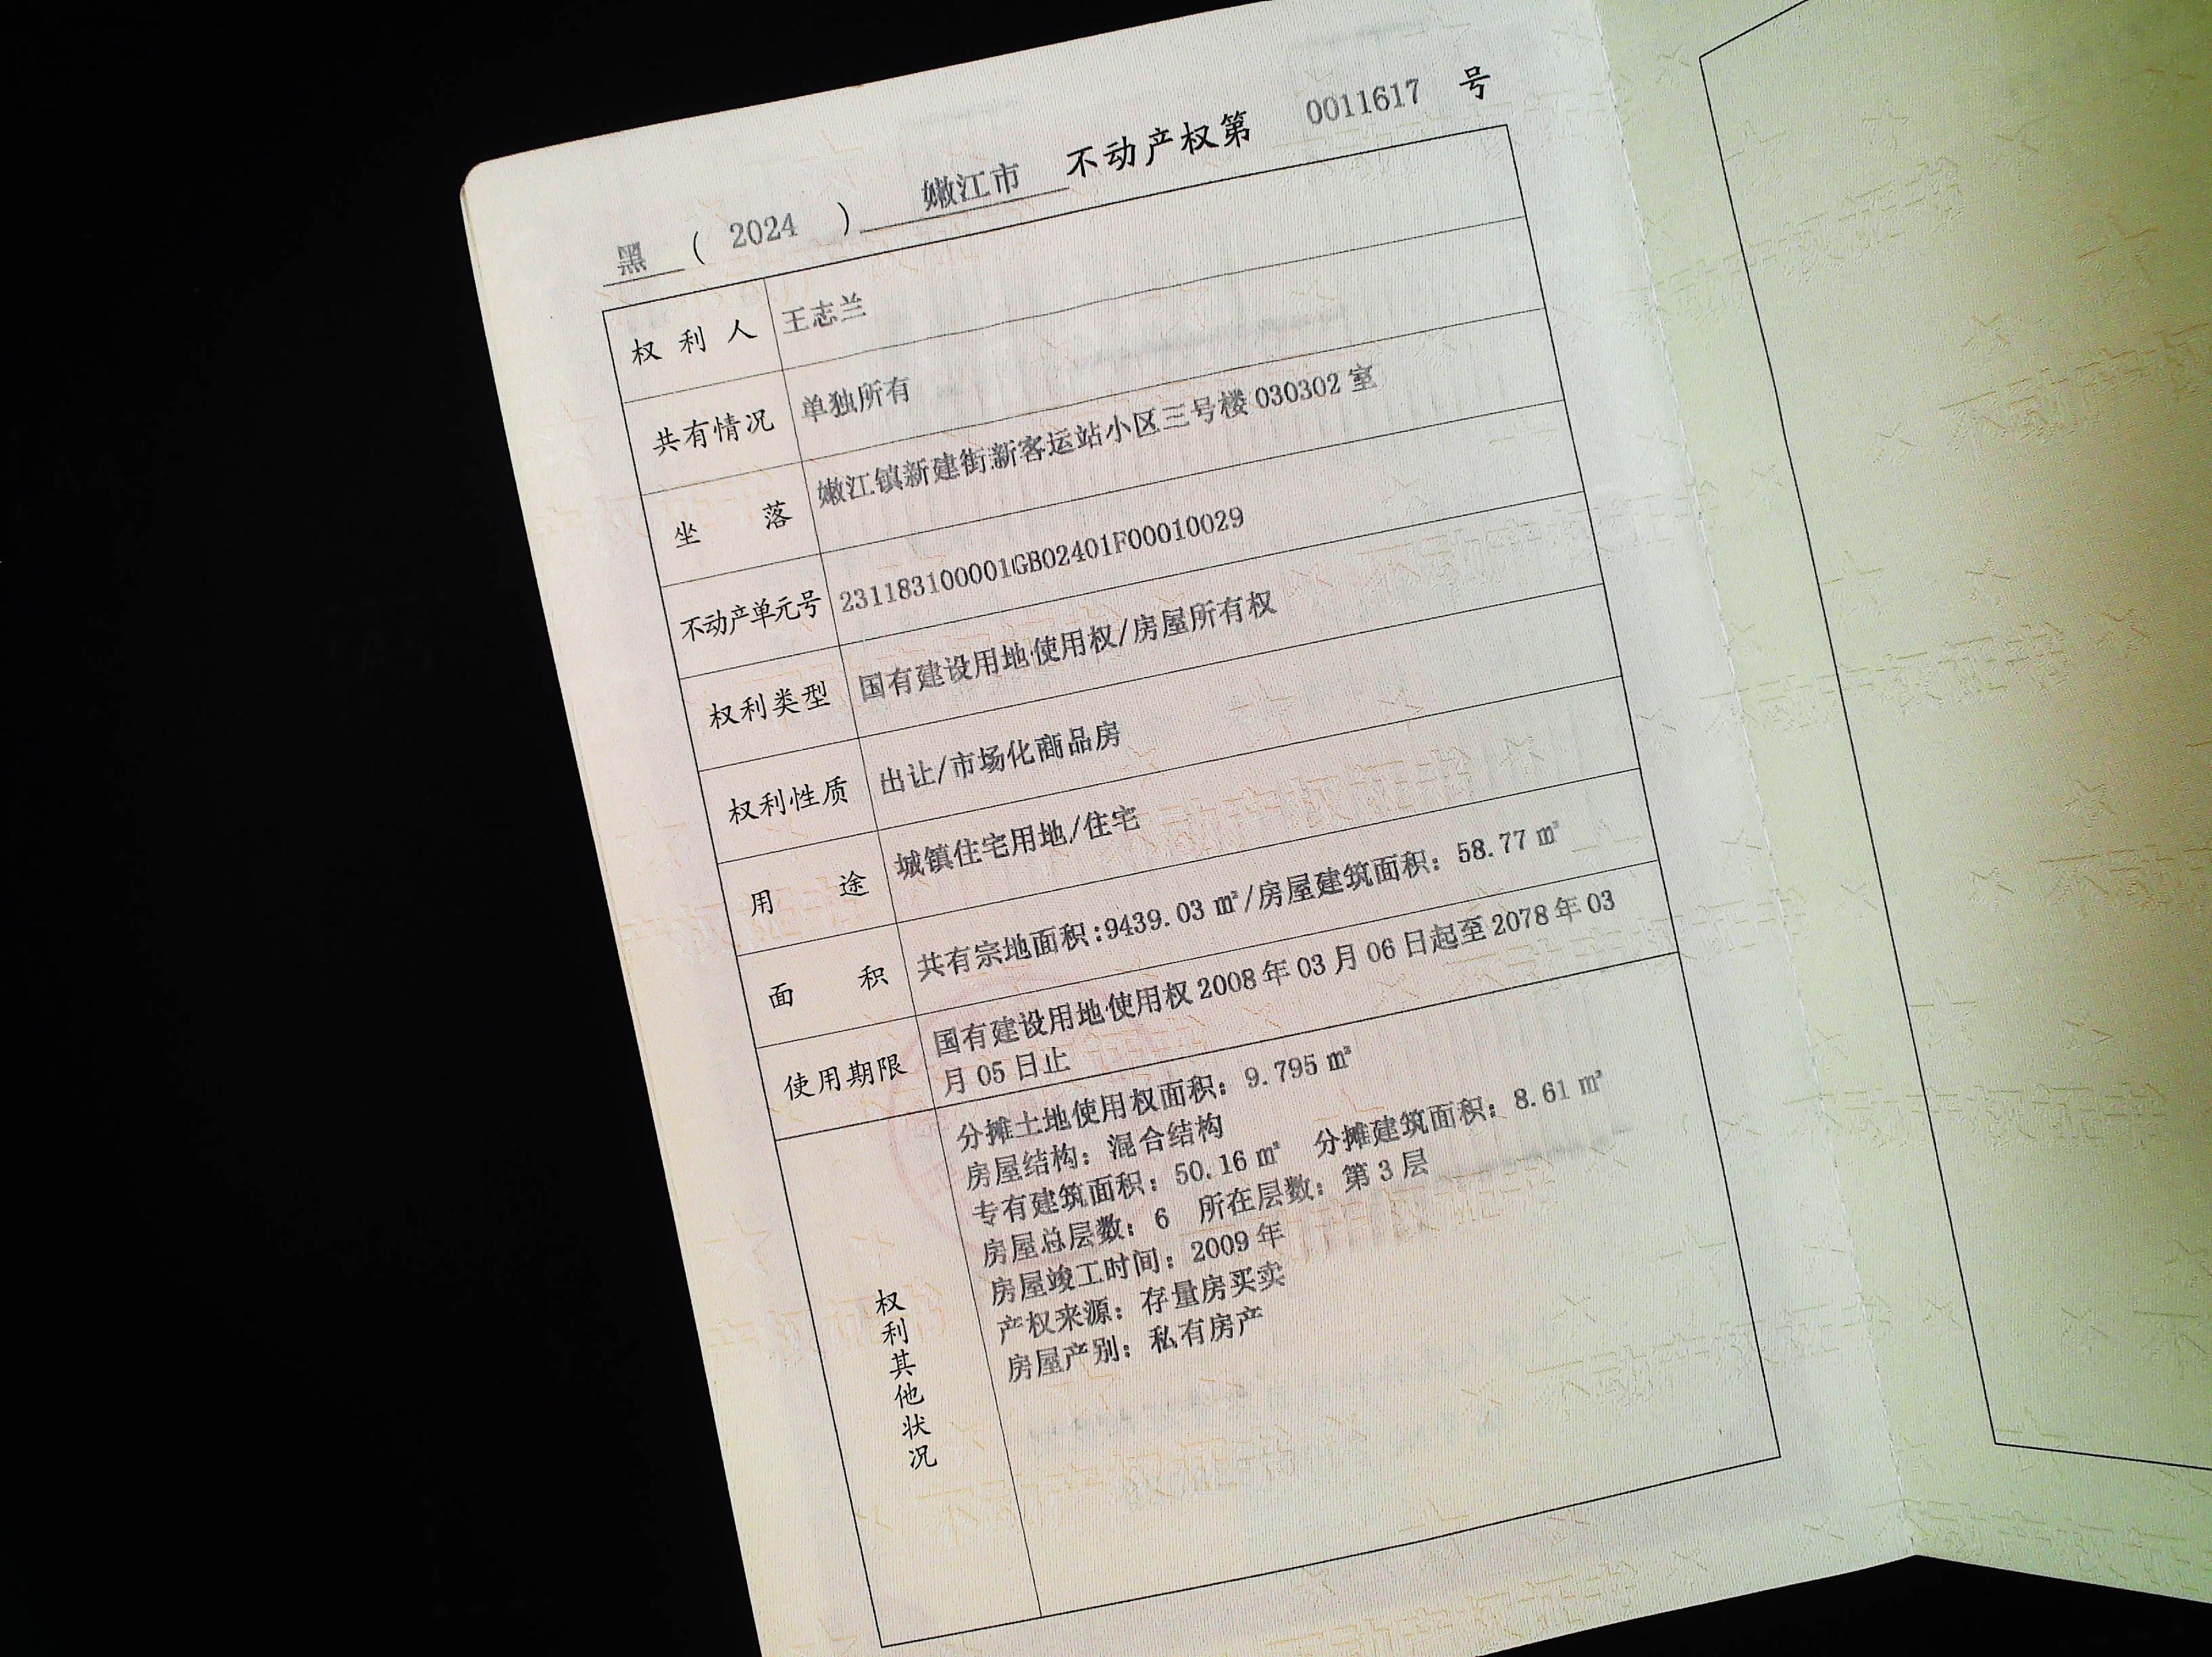 黑 ( 2024 ) 嫩江市 不动产权第 0011617 号
权利人 王志兰
共有情况 单独所有
坐落 嫩江镇新建街新客运站小区三号楼030302室
不动产单元号 231183100001GB02401F00010029
权利类型 国有建设用地使用权/房屋所有权
权利性质 出让/市场化商品房
用途 城镇住宅用地/住宅
面积 共有宗地面积:9439.03㎡/房屋建筑面积：58.77㎡
使用期限 国有建设用地使用权2008年03月06日起至2078年03
月05日止
权利其他状况
分摊土地使用权面积：9.795㎡
房屋结构：混合结构
专有建筑面积：50.16㎡ 分摊建筑面积：8.61㎡
房屋总层数：6 所在层数：第3层
房屋竣工时间：2009年
产权来源：存量房买卖
房屋产别：私有房产